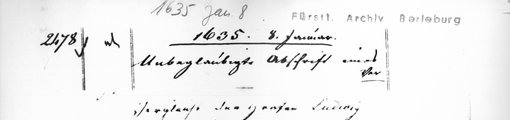 1635 Jan 8
Fürstl. Archiv Berleburg
2478
1635. 8. Januar.
Unbeglaubigte Abschrift eines
Ver
des Grafen Ludwig